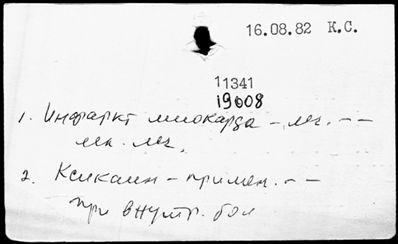 16.08.82 К.С.
11341
19008
1. Инфаркт миокарда – леч. – –
2. Ксикаин – примен. – –
при внутр.